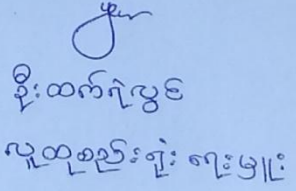 ဦးထက်ရဲလွင်
လူထုစည်းရုံးရေးမှူး